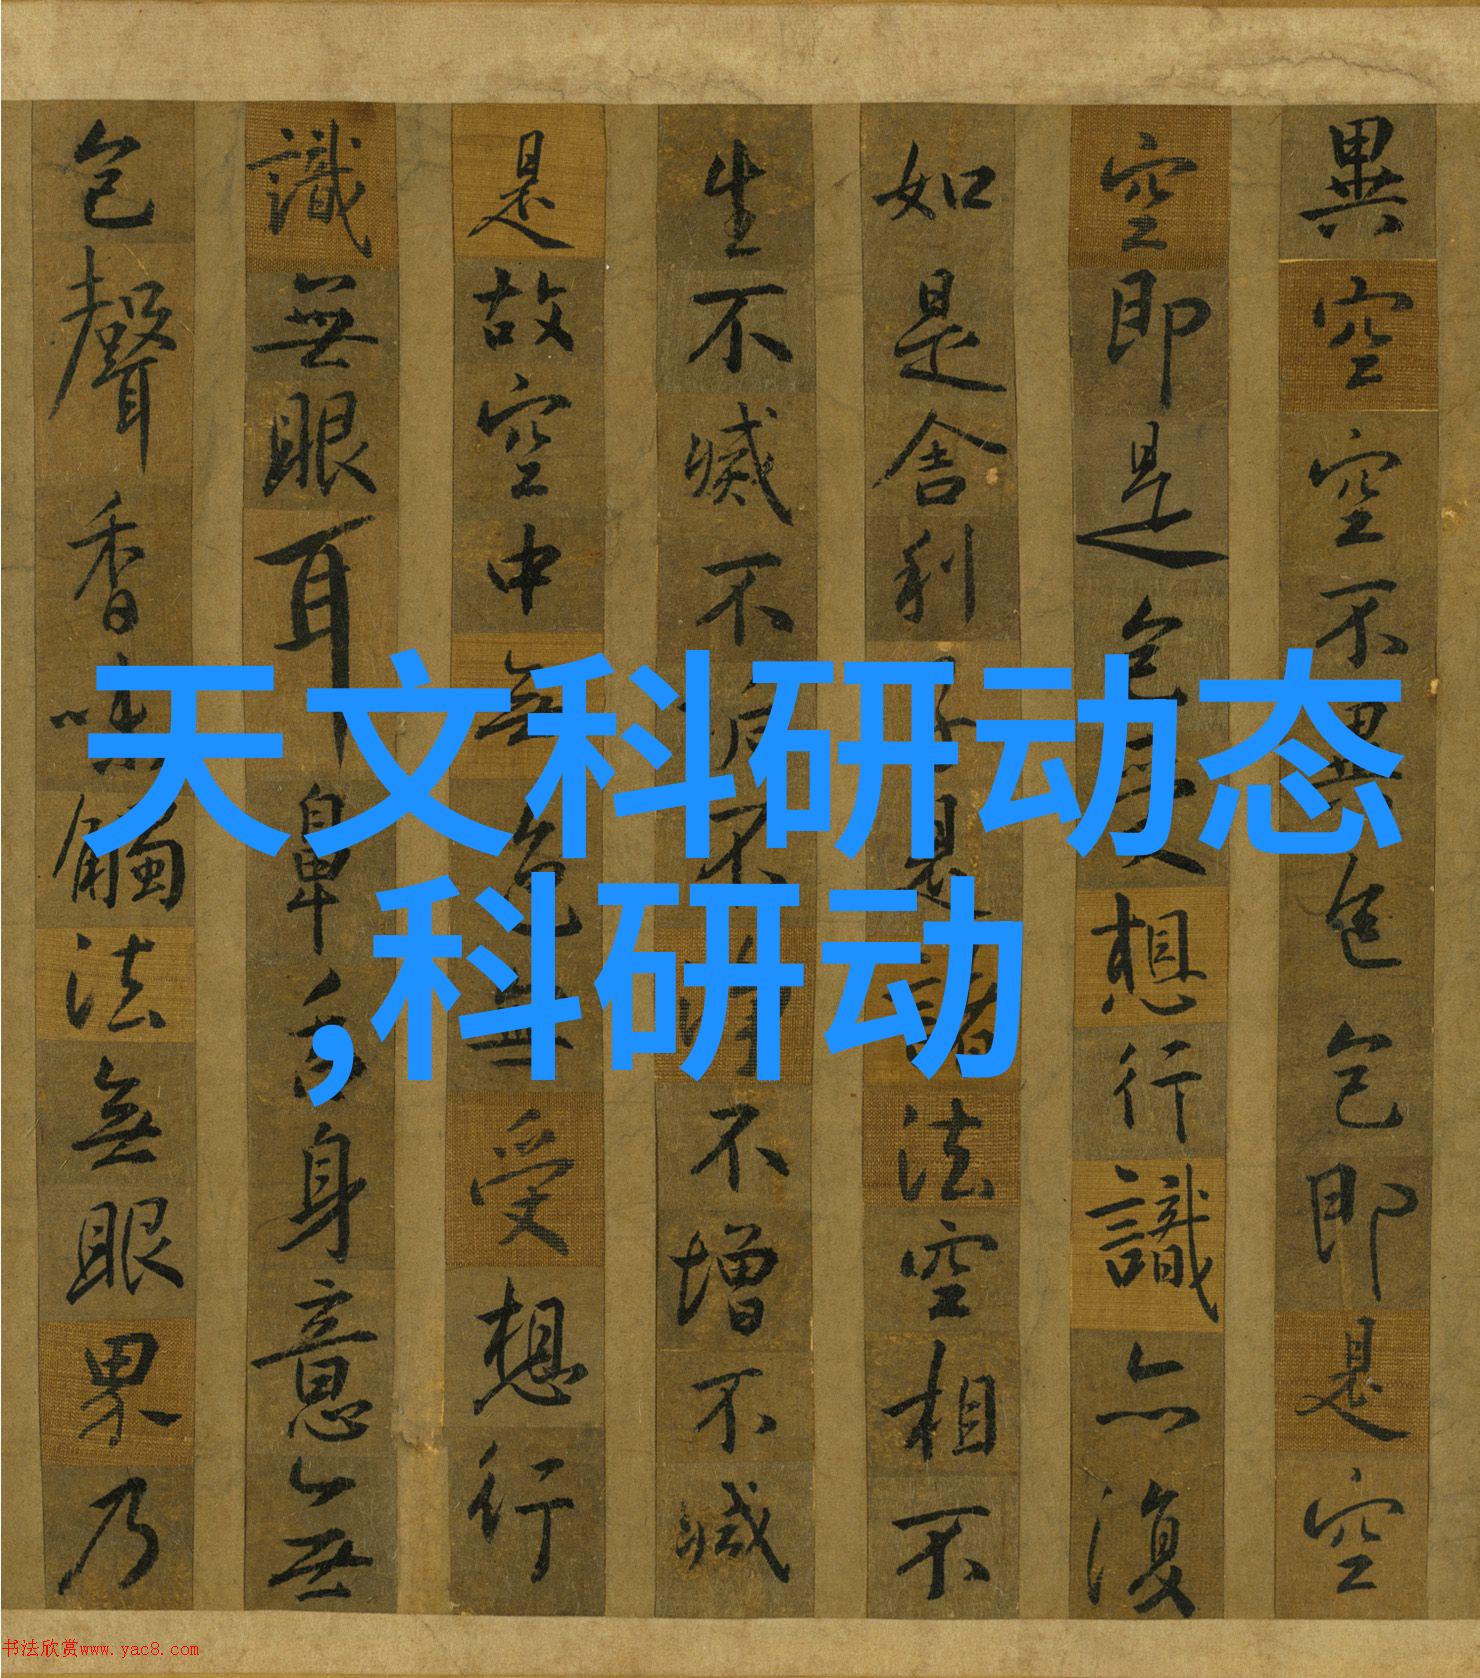 天文科研动态
,科研动
異空空不異色色即是空
空即是色受想行識亦復
如是舍利子是諸法空相不
生不滅不垢不淨不增不減
是故空中無色無受想行
識無眼耳鼻舌身意無
色聲香味觸法無眼界乃
书法欣赏www.yac8.com